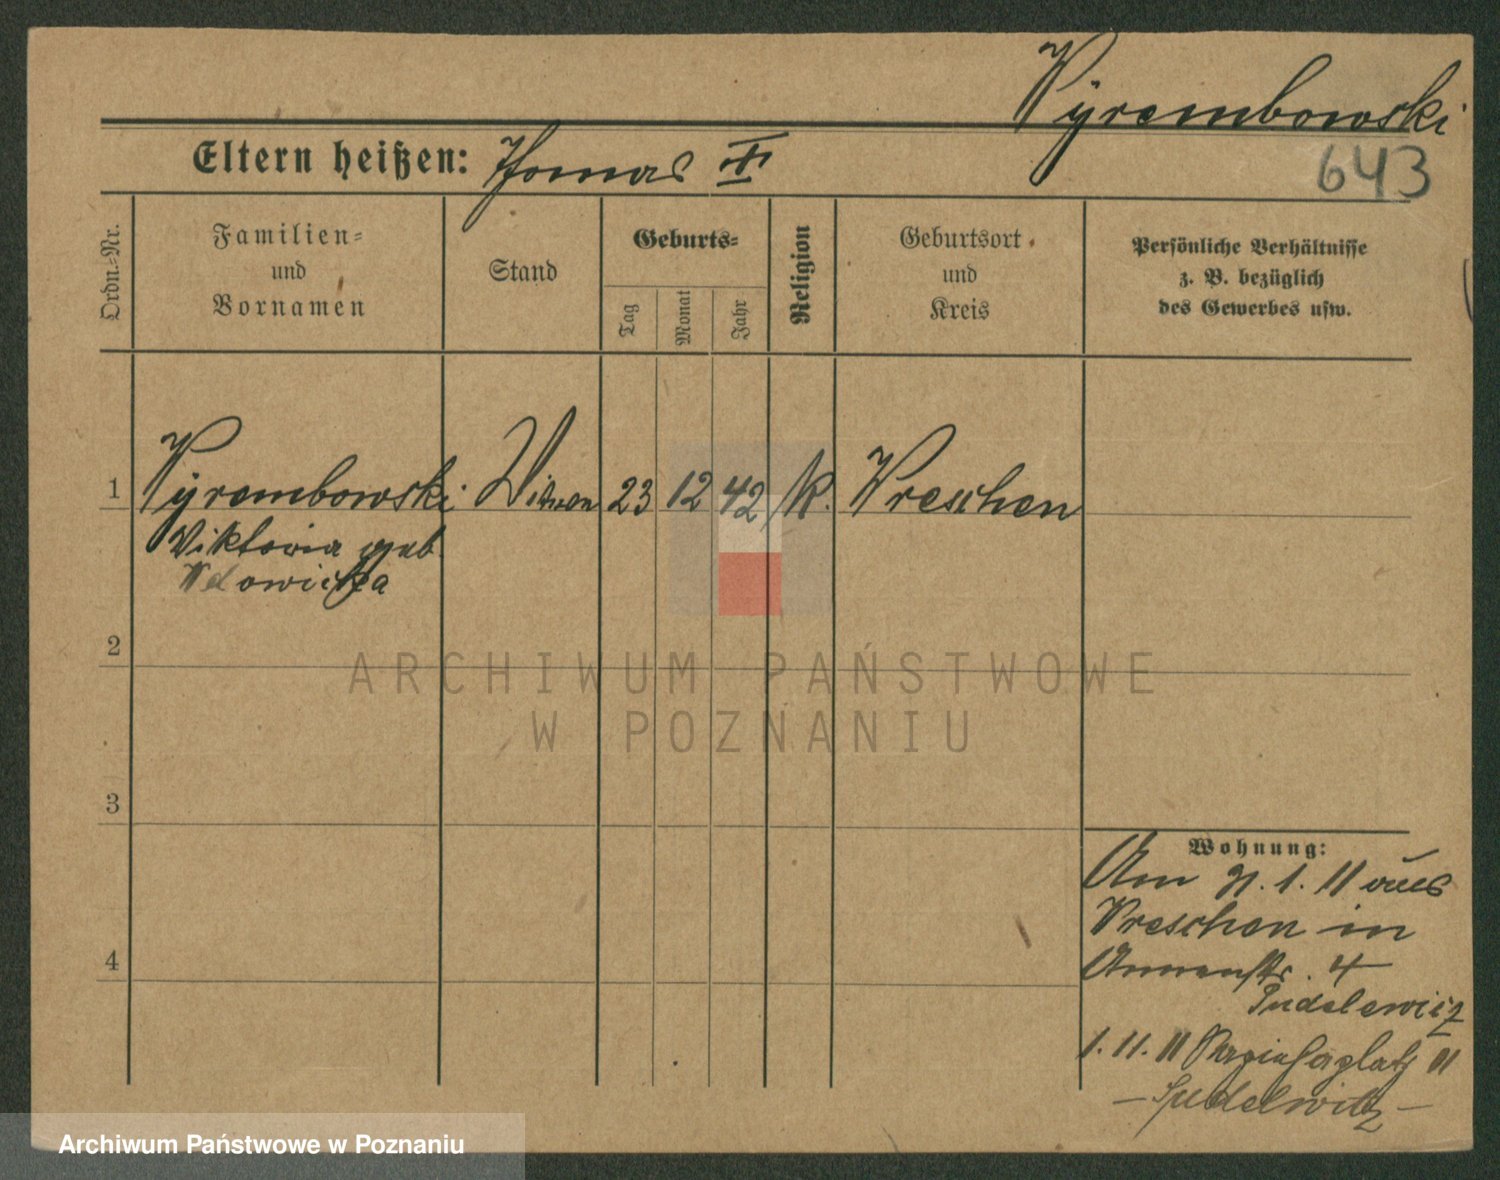 Wyrembowski
643
Eltern heißen: Thomas
Ordn.-Nr.
Familien-
und
Vornamen
Stand
Geburts-
Tag
Monat
Jahr
Religion
Geburtsort
und
Kreis
Persönliche Verhältnisse
z. B. bezüglich
des Gewerbes usw.
1 Wyrembowski Witwe 23 12 42 k. Wreschen
Viktoria geb.
Wdowicka
2
3
4
ARCHIWUM PAŃSTWOWE
W POZNANIU
Wohnung:
Am 1. 11 aus
Wreschen in
Annenstr. 4
1. 11. 11
Archiwum Państwowe w Poznaniu